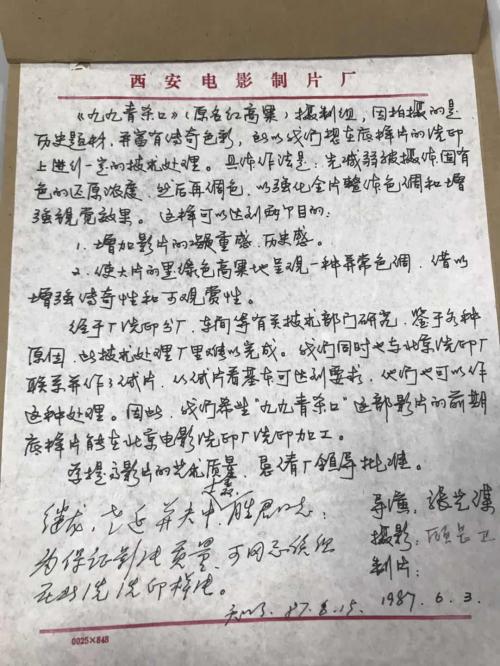 西安电影制片厂
《九九青杀口》(原名红高粱)摄制组，因拍摄的是
历史题材，并富有传奇色彩，所以我们想在底样片的洗印
上进行一定的技术处理。具体作法是：先减弱被摄体固有
色的还原浓度，然后再调色，以强化全片整体色调和增
强视觉效果。这样可以达到两个目的：
1. 增加影片的凝重感、历史感。
2. 使大片的墨绿色高粱地呈现一种异常色调，借以
增强传奇性和可观赏性。
经于厂洗印分厂，车间等有关技术部门研究，鉴于各种
原因，此技术处理厂里难以完成。我们同时也与北京洗印厂
联系并作了试片，从试片看基本可达到要求，他们也可以作
这种处理。因此，我们希望"九九青杀口"这部影片的前期
底样片能在北京电影洗印厂洗印加工。
为提高影片的艺术质量，恳请厂领导批准。
导演：张艺谋
摄影：顾长卫
制片：
1987.6.3.
为保证影片质量，可同意你组
在北洗洗印样片。
87.6.15.
0025×848